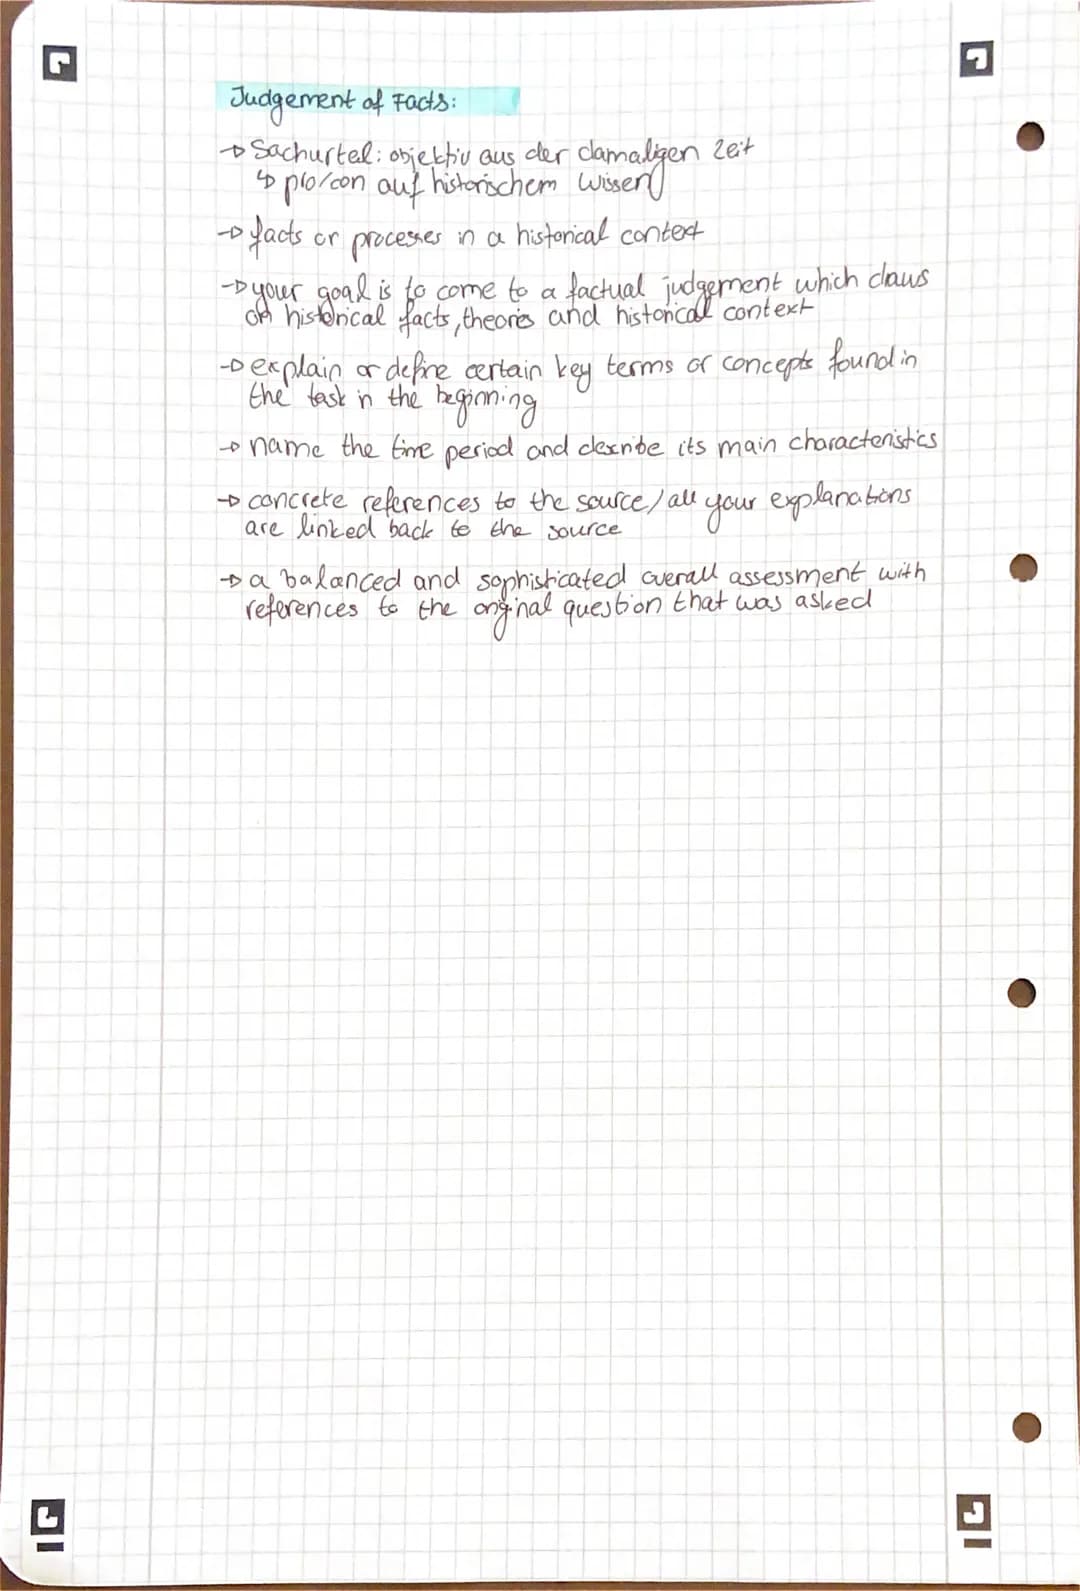 Judgement of Facts:
→ Sachurteil: objektiv aus der damaligen Zeit
↳ pro/con auf historischem Wissen
→ facts or processes in a historical context
→ your goal is to come to a factual judgement which draws
on historical facts, theories and historical context
→ explain or define certain key terms or concepts found in
the task in the beginning
→ name the time period and describe its main characteristics
→ concrete references to the source / all your explanations
are linked back to the source
→ a balanced and sophisticated overall assessment with
references to the original question that was asked